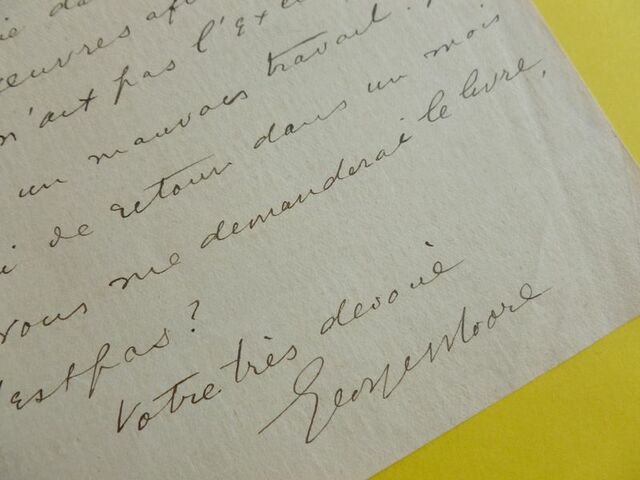 ie da
oeuvres af
n'aut pas l'Ex
un mauvais travail.
i de retour dans un mois
vous me demanderai le livre,
'est pas?
Votre très devoué
George Moore